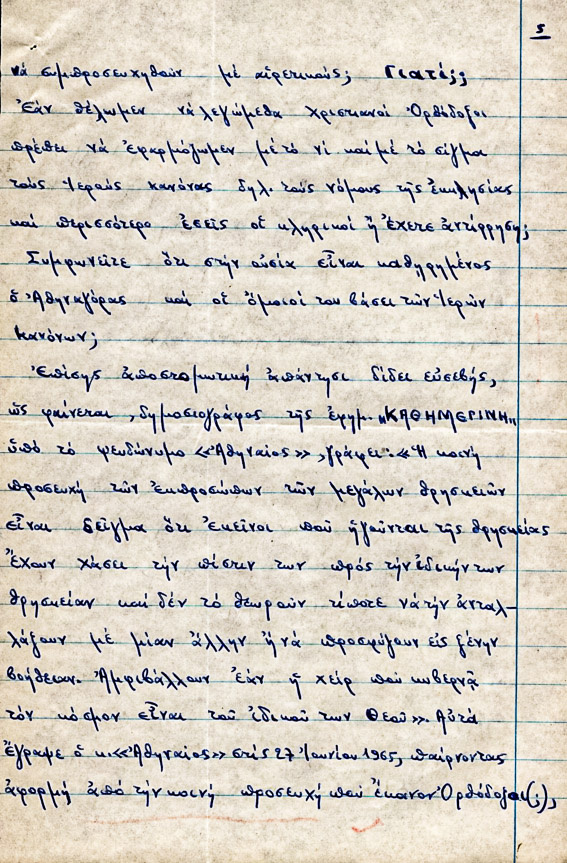 5
νά συμπροσευχηθοῦν μέ αἱρετικούς; Γιατί;;
Ἐάν θέλωμεν νά λεγώμεθα Χριστιανοί Ὀρθόδοξοι
πρέπει νά ἐφαρμόζωμεν μέ τό νί καί μέ τό σῖγμα
τούς Ἱερούς κανόνας δηλ. τούς νόμους τῆς Ἐκκλησίας
καί περισσότερο ἐσεῖς οἱ κληρικοί ἤ ἔχετε ἀντίρρηση;
Συμφωνεῖτε ὅτι στήν οὐσία εἶναι καθηρημένος
ὁ Ἀθηναγόρας καί οἱ ὅμοιοί του βάσει τῶν Ἱερῶν
Κανόνων;
Ἐπίσης ἀποστομωτική ἀπάντησι δίδει εὐσεβής,
ὡς φαίνεται, δημοσιογράφος τῆς ἐφημ. „ΚΑΘΗΜΕΡΙΝΗ„
ὑπό τό ψευδώνυμο «Ἀθηναῖος», γράφει: «Ἡ κοινή
προσευχή τῶν ἐκπροσώπων τῶν μεγάλων θρησκειῶν
εἶναι δεῖγμα ὅτι ἐκεῖνοι πού ἡγοῦνται τῆς θρησκείας
Ἔχουν χάσει τήν πίστιν των πρός τήν ἰδικήν των
θρησκείαν καί δέν τό θεωροῦν τίποτε νά τήν ἀνταλ-
λάξουν μέ μίαν ἄλλην ἤ νά προσφύγουν εἰς ξένην
βοήθειαν. Ἀμφιβάλλουν ἐάν ἡ χείρ πού κυβερνᾷ
τόν κόσμον εἶναι τοῦ ἰδικοῦ των Θεοῦ». Αὐτά
ἔγραψε ὁ κ. «Ἀθηναῖος» στίς 27 Ἰουνίου 1965, παίρνοντας
ἀφορμή ἀπό τήν κοινή προσευχή πού ἔκανον Ὀρθόδοξοι(;),